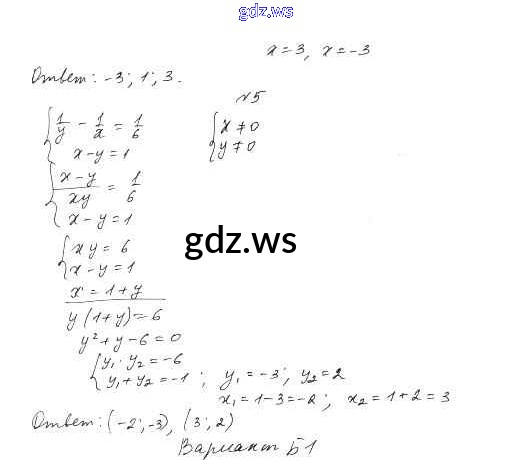 gdz.ws
x = 3, x = -3
Ответ: -3; 1; 3.
№5
{ 1/y - 1/x = 1/6
x - y = 1
{ x ≠ 0
y ≠ 0
{ (x - y)/(xy) = 1/6
x - y = 1
{ xy = 6
x - y = 1
gdz.ws
x = 1 + y
y(1 + y) = 6
y² + y - 6 = 0
{ y₁ · y₂ = -6
y₁ + y₂ = -1 ; y₁ = -3; y₂ = 2
x₁ = 1 - 3 = -2; x₂ = 1 + 2 = 3
Ответ: (-2; -3), (3; 2)
Вариант Б1